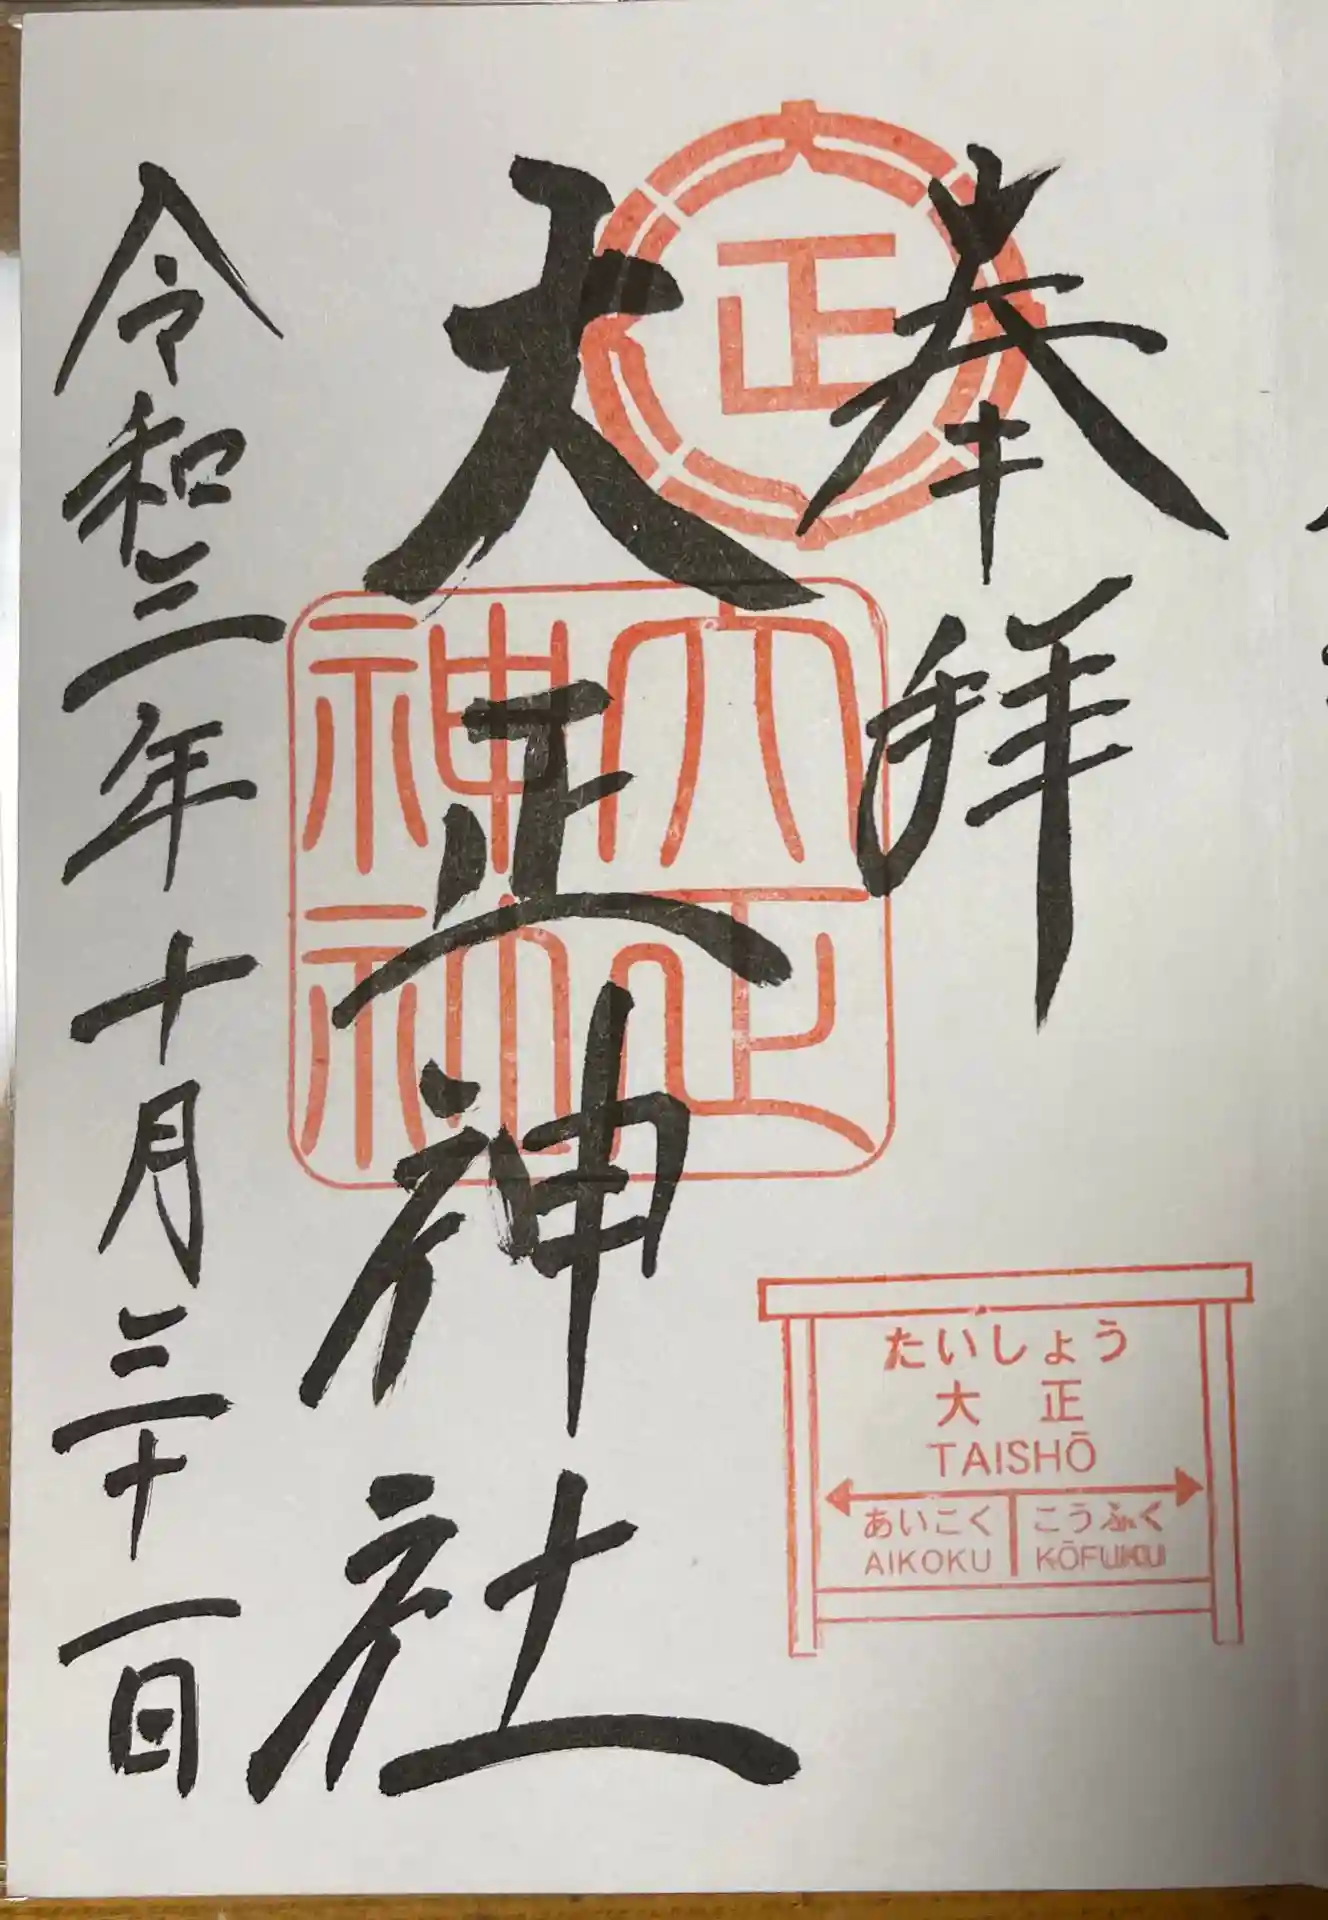 奉拝
正
大正神社
大正
神社
たいしょう
大正
TAISHŌ
あいこく こうふく
AIKOKU KŌFUKU
令和三年十月三十一日